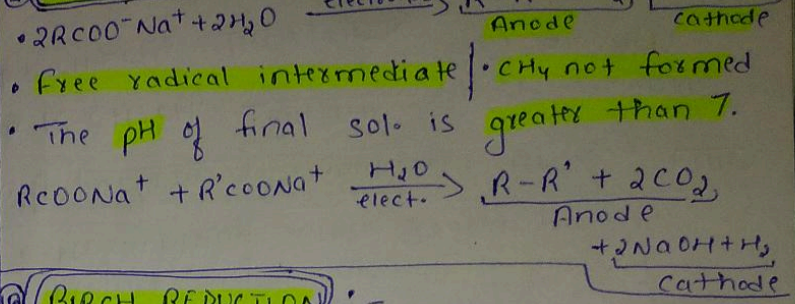 Anode cathode
• 2RCOO⁻Na⁺ + 2H₂O
• Free radical intermediate | • CH₄ not formed
• The pH of final sol. is greater than 7.
RCOONa⁺ + R'COONa⁺ H₂O elect. → R-R' + 2CO₂
Anode
+ 2NaOH + H₂
cathode
BIRCH REDUCTION